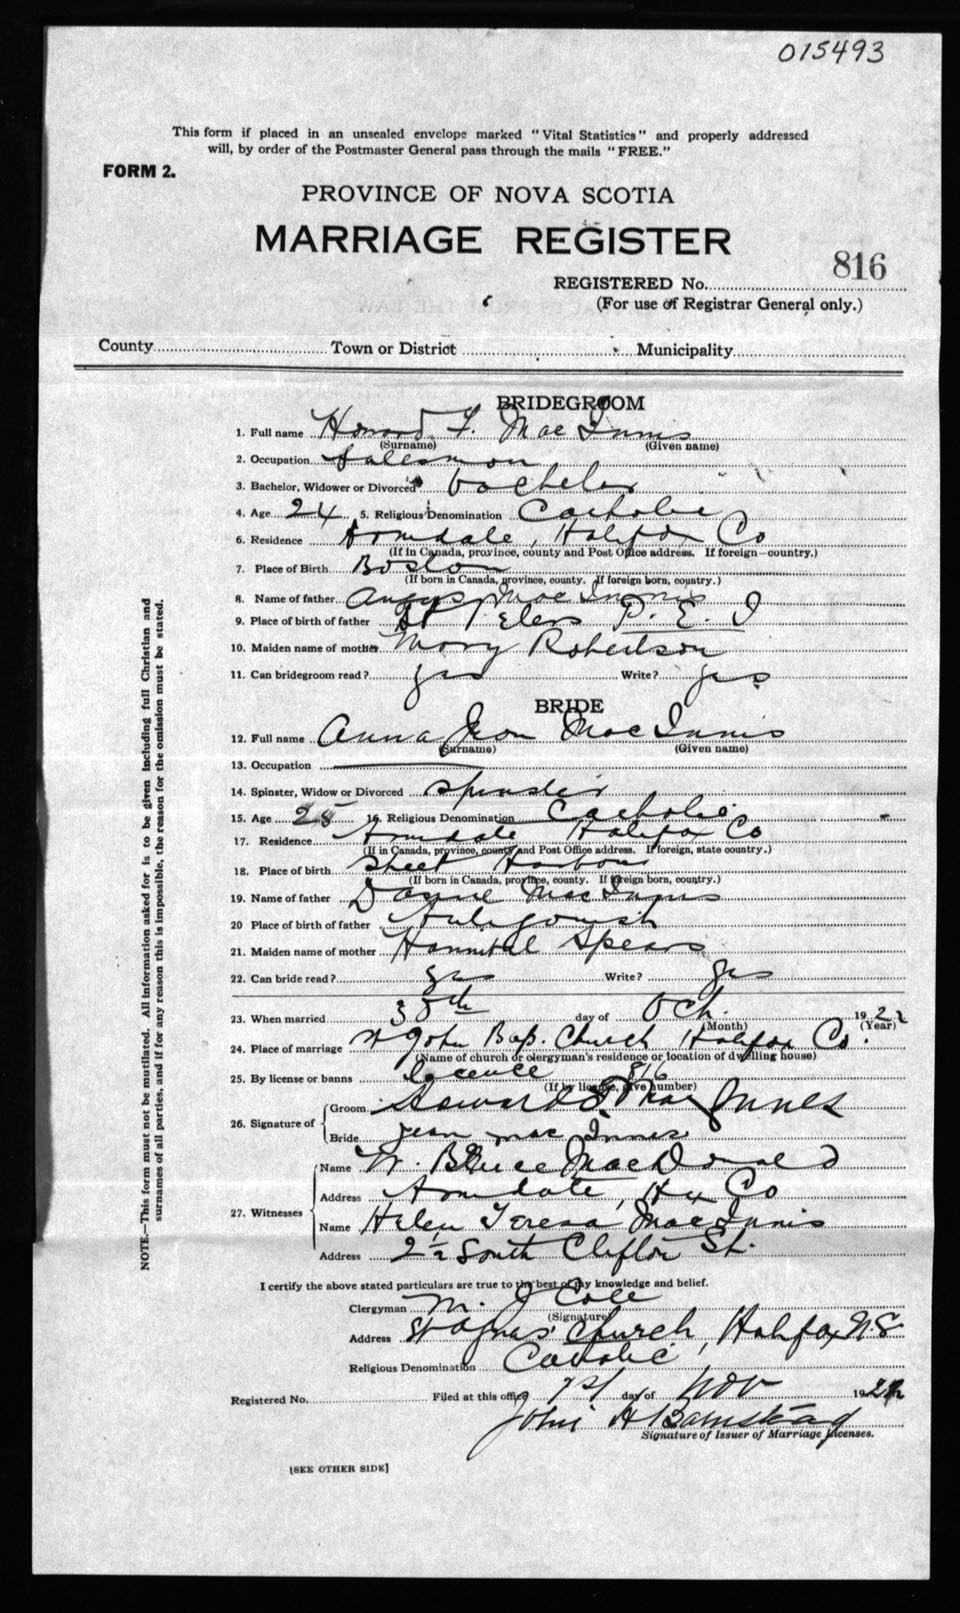 015493
This form if placed in an unsealed envelope marked "Vital Statistics" and properly addressed
will, by order of the Postmaster General pass through the mails "FREE."
FORM 2.
PROVINCE OF NOVA SCOTIA
MARRIAGE REGISTER
816
REGISTERED No.
(For use of Registrar General only.)
County Town or District Municipality
BRIDEGROOM
1. Full name Howard F. MacInnis
(Surname) (Given name)
2. Occupation Salesman
3. Bachelor, Widower or Divorced bachelor
4. Age 24 5. Religious Denomination Catholic
6. Residence Armdale, Halifax Co
(If in Canada, province, county and Post Office address. If foreign—country.)
7. Place of Birth Boston
(If born in Canada, province, county. If foreign born, country.)
8. Name of father Angus MacInnis
9. Place of birth of father St Peters P. E. I
10. Maiden name of mother Mary Robertson
11. Can bridegroom read? yes Write? yes
BRIDE
12. Full name Anna Jean MacInnis
(Surname) (Given name)
13. Occupation
14. Spinster, Widow or Divorced Spinster
15. Age 25 16. Religious Denomination Catholic
17. Residence Armdale Halifax Co
(If in Canada, province, county and Post Office address. If foreign, state country.)
18. Place of birth Sheet Harbour
(If born in Canada, province, county. If foreign born, country.)
19. Name of father MacInnis
20 Place of birth of father Antigonish
21. Maiden name of mother Spears
22. Can bride read? yes Write? yes
23. When married 30th day of Oct. 1922
(Month) (Year)
24. Place of marriage St John Bap. Church Halifax Co.
(Name of church or clergyman's residence or location of dwelling house)
25. By license or banns licence 816
(If by license, give number)
26. Signature of Groom Howard F. MacInnes
Bride Jean MacInnis
27. Witnesses Name W. Bruce MacDonald
Address Armdale, Hx Co
Name Helen Teresa MacInnis
Address 2½ South Clifton St.
I certify the above stated particulars are true to the best of my knowledge and belief.
Clergyman M. J Cole
(Signature)
Address St Agnes' Church, Halifax N.S.
Religious Denomination Catholic
Registered No. Filed at this office 1st day of Nov 1922
John H Barnstead
Signature of Issuer of Marriage Licenses.
[SEE OTHER SIDE]
NOTE.—This form must not be mutilated. All information asked for is to be given including full Christian and
surnames of all parties, and if for any reason this is impossible, the reason for the omission must be stated.